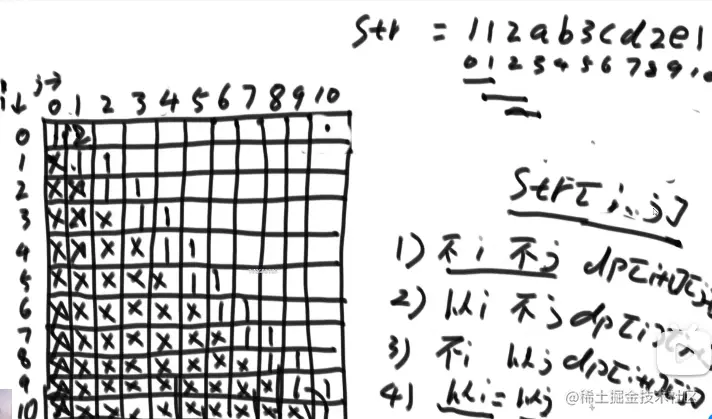 str = 112ab3cd2e1
0 1 2 3 4 5 6 7 8 9 10
j→
i↓ 0 1 2 3 4 5 6 7 8 9 10
0 1 2
1 X 1 1
2 X X 1 1
3 X X X 1 1
4 X X X X 1 1
5 X X X X X 1 1
6 X X X X X X 1 1
7 X X X X X X X 1 1
8 X X X X X X X X 1 1
9 X X X X X X X X X 1 1
10 X X X X X X X X X
str[i..j]
1) 不i 不j dp[i+1][j
2) 以i 不j dp[i][
3) 不i 以j dp[i+1][j]
4) 以i = 以j
@稀土掘金技术社区